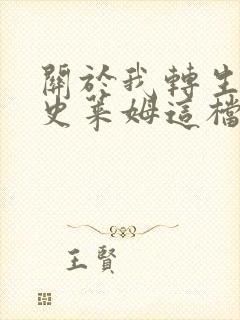 關於我轉生
史萊姆這檔
王賢